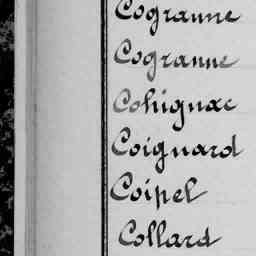 Cogranne
Cogranne
Cohignac
Coignard
Coipel
Collard